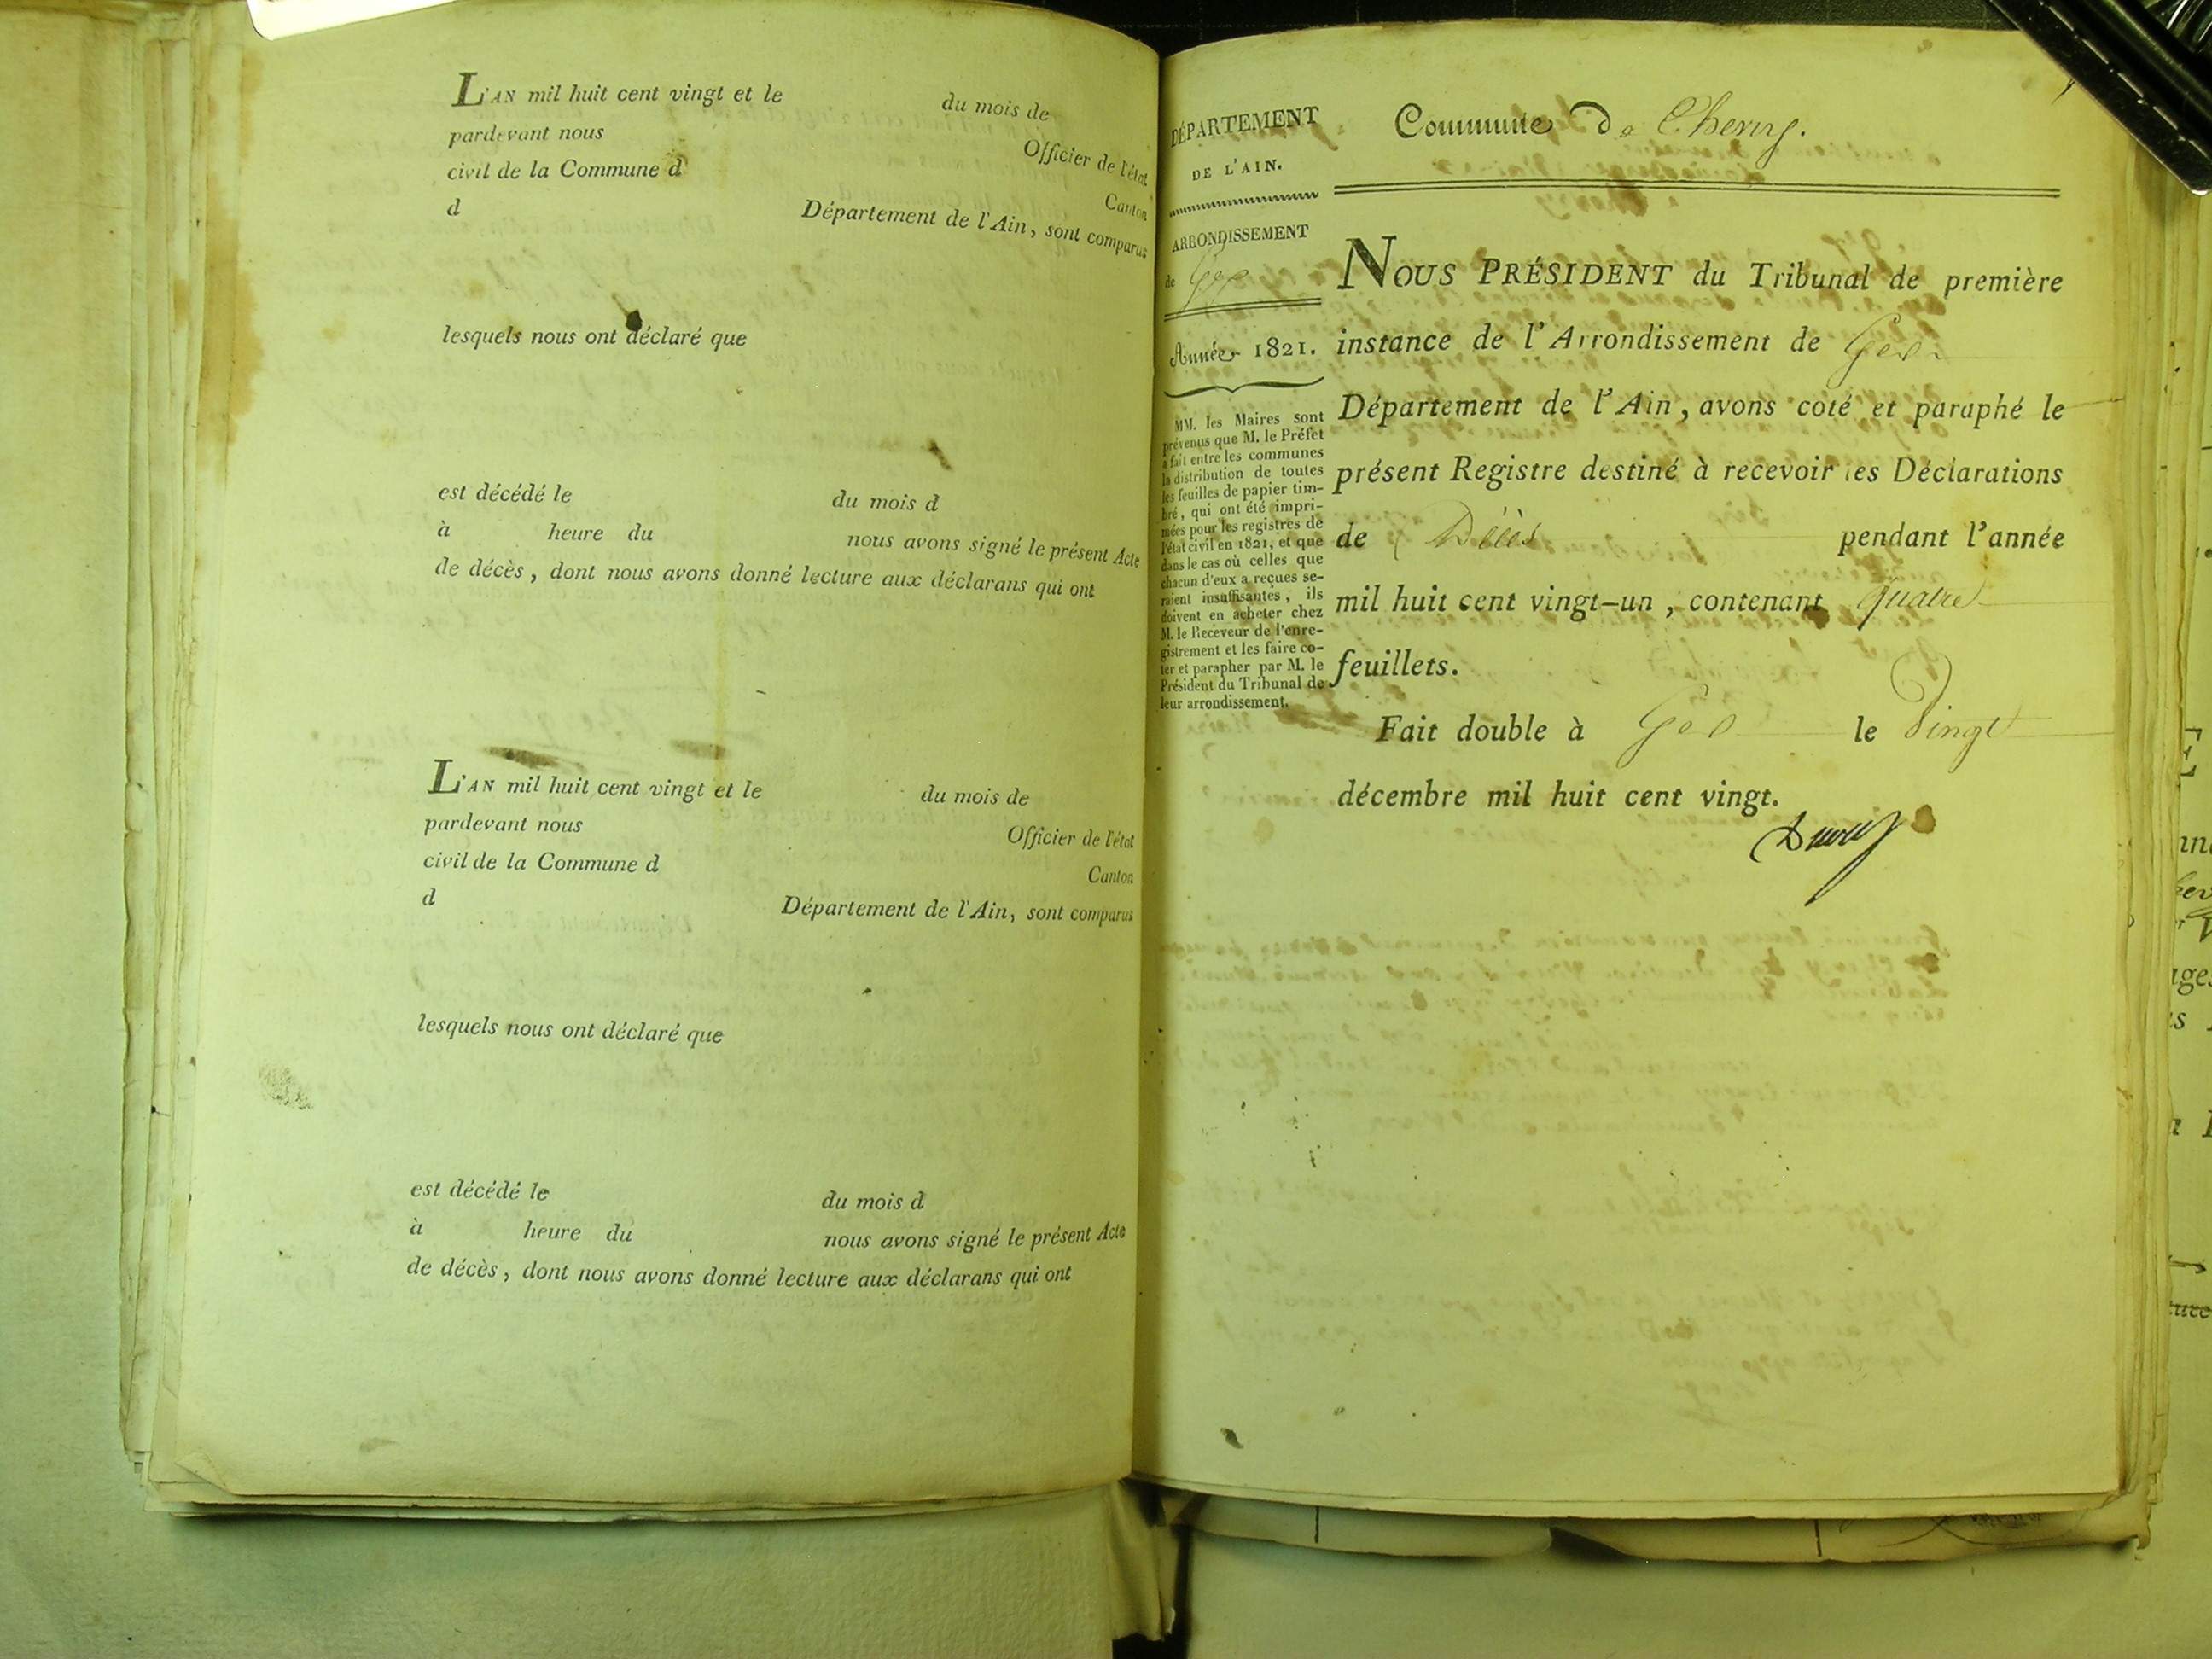 L'AN mil huit cent vingt et le du mois de
pardevant nous Officier de l'état
civil de la Commune d Canton
d Département de l'Ain, sont comparus
lesquels nous ont déclaré que
est décédé le du mois d
à heure du nous avons signé le présent Acte
de décès, dont nous avons donné lecture aux déclarans qui ont
L'AN mil huit cent vingt et le du mois de
pardevant nous Officier de l'état
civil de la Commune d Canton
d Département de l'Ain, sont comparus
lesquels nous ont déclaré que
est décédé le du mois d
à heure du nous avons signé le présent Acte
de décès, dont nous avons donné lecture aux déclarans qui ont
DÉPARTEMENT
DE L'AIN.
ARRONDISSEMENT
de Gex
Année 1821.
MM. les Maires sont
prévenus que M. le Préfet
a fait entre les communes
la distribution de toutes
les feuilles de papier tim-
bré, qui ont été impri-
mées pour les registres de
l'état civil en 1821, et que
dans le cas où celles que
chacun d'eux a reçues se-
raient insuffisantes, ils
doivent en acheter chez
M. le Receveur de l'enre-
gistrement et les faire co-
ter et parapher par M. le
Président du Tribunal de
leur arrondissement.
Commune de Chevry.
NOUS PRÉSIDENT du Tribunal de première
instance de l'Arrondissement de Gex
Département de l'Ain, avons coté et paraphé le
présent Registre destiné à recevoir les Déclarations
de Décès pendant l'année
mil huit cent vingt-un, contenant quatre
feuillets.
Fait double à Gex le vingt
décembre mil huit cent vingt.